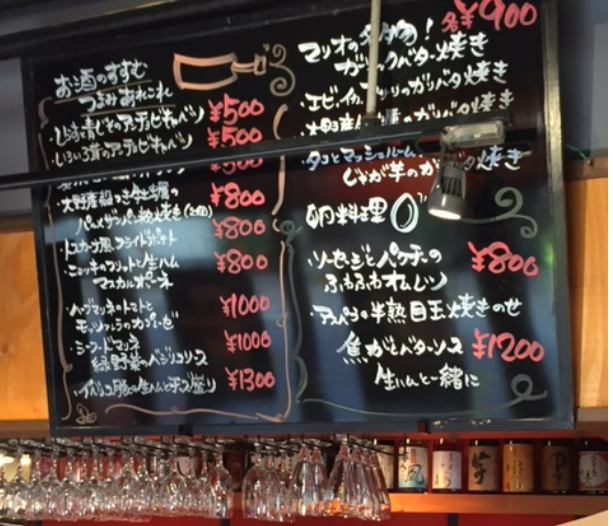 お酒のすすむ
つまみあれこれ
アンチョビキャベツ ¥500
アンチョビキャベツ ¥500
¥500
大野産殻つき生牡蠣の ¥800
パルメザンパン粉焼き
トスカーナ風フライドポテト ¥800
ニョッキのフリットと生ハム ¥800
マスカルポーネ
ハーブマリネのトマトと ¥1000
モッツァレラのカプレーゼ
シーフードマリネ ¥1000
緑野菜のバジリコソース
イベリコ豚の生ハムとチーズ盛り ¥1300
各¥900
マリオの名物!
ガーリックバター焼き
エビ、イカ、アサリのガリバタ焼き
大野産 のガリバタ焼き
タコとマッシュルーム、
じゃが芋の 焼き
卵料理
ソーセージとパクチーの ¥800
ふわふわオムレツ
アスパラの半熟目玉焼きのせ
焦がしバターソース ¥1200
生ハムと一緒に